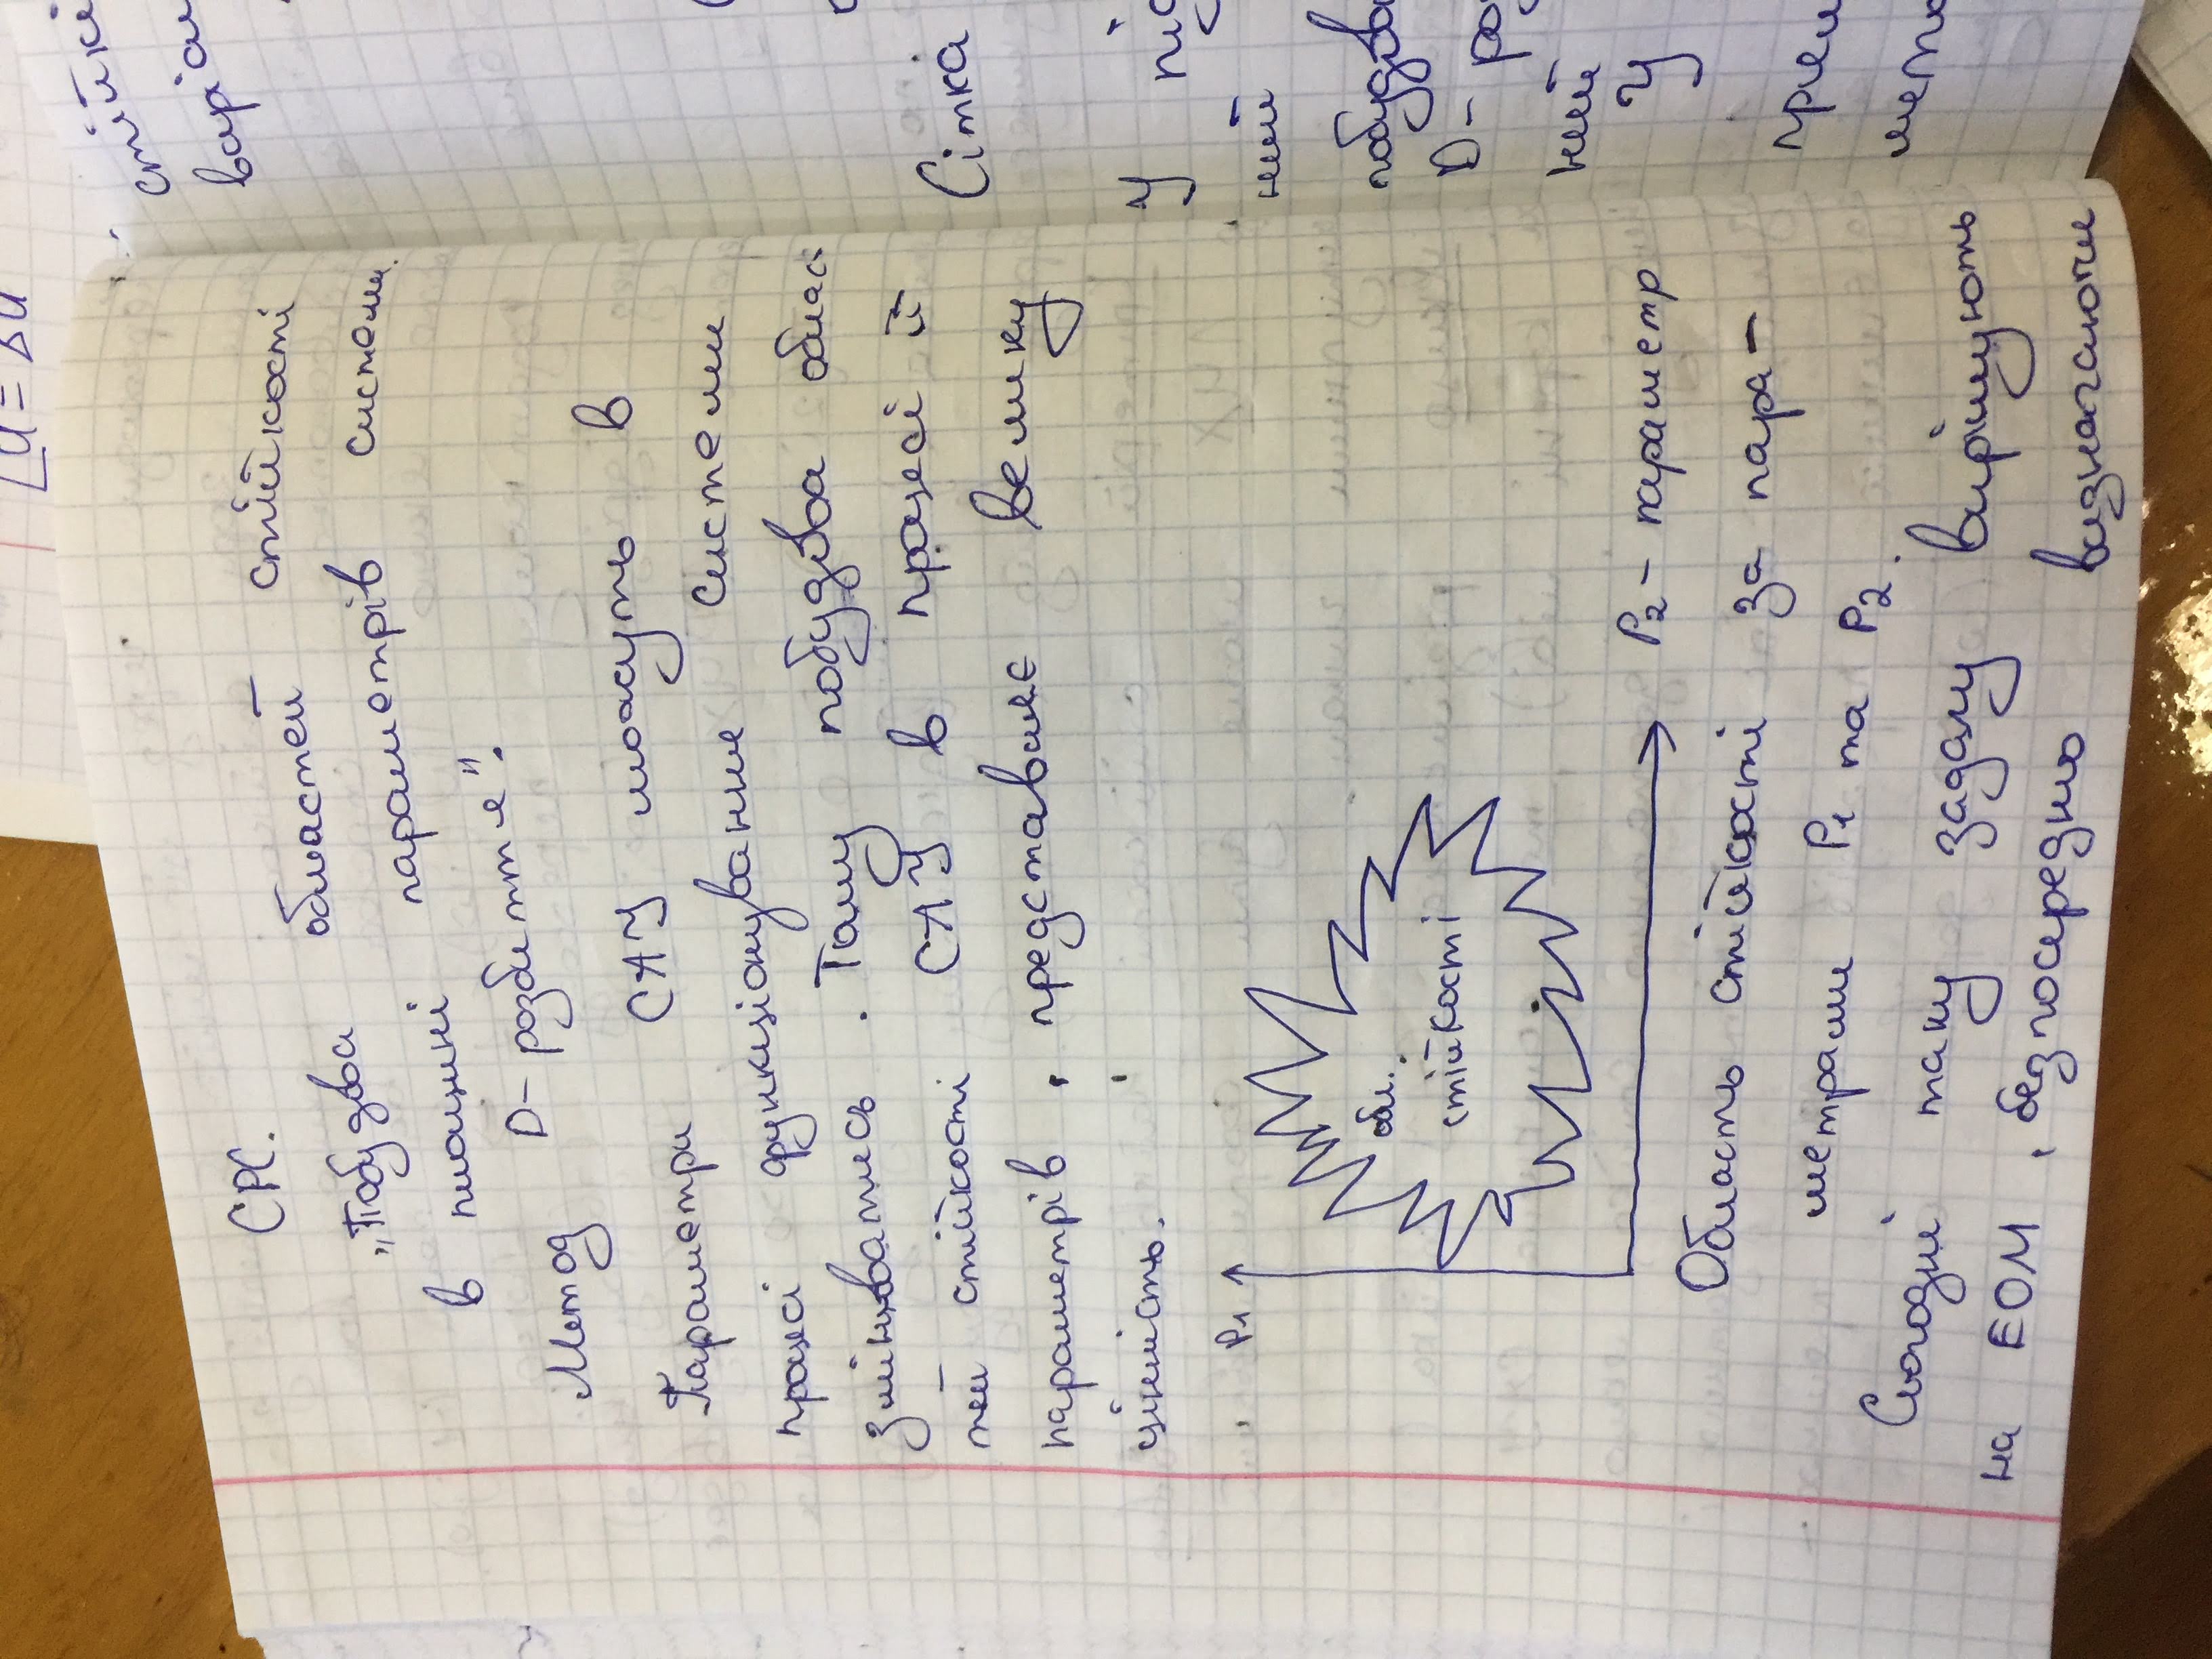 СРС.
„Побудова областей стійкості
в площині параметрів системи.
Метод D-розбиття".
Параметри САУ можуть в
процесі функціонування системи
змінюватись. Тому побудова облас-
тей стійкості САУ в процесі її
параметрів, представляє велику
цінність.
P1
обл.
стійкості
P2 - параметр
Область стійкості за пара-
метрами P1 та P2.
Сьогодні таку задачу вирішують
на ЕОМ, безпосередньо визначаючи
∠U = ΔU
стійкі
варіан
Сітка
У під
ний
побудова
D- роз
ний
У
прям
мето